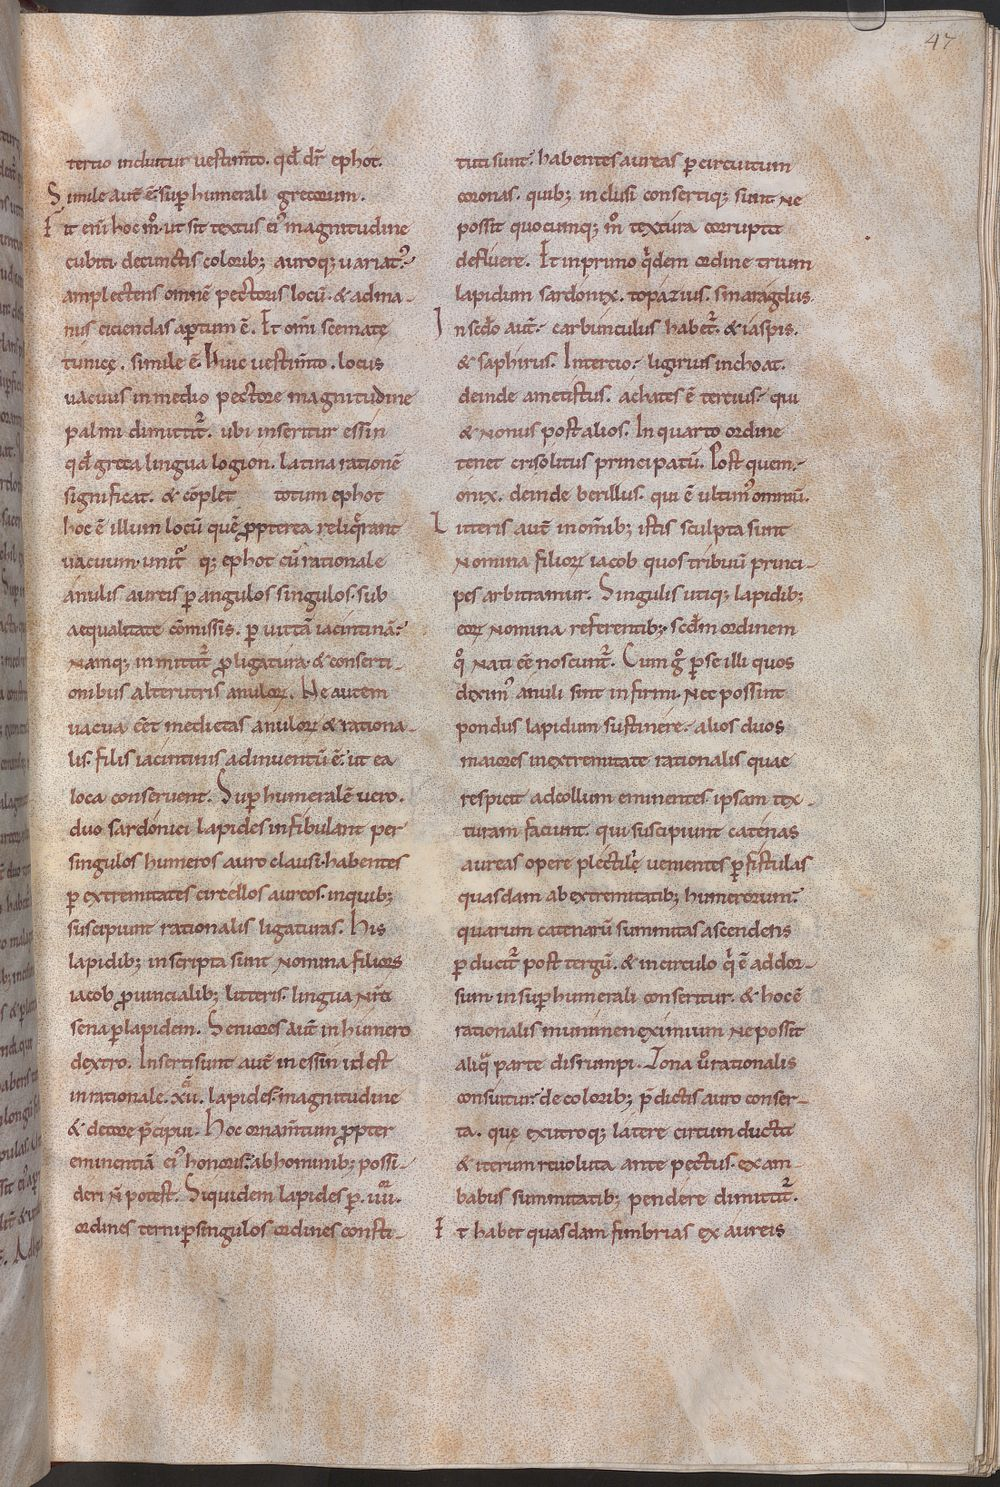 47
tertio induitur vestim̅to. qđ dr̅ ephot.
Simile aut̅ e̅. sup̱humerali grecorum.
Fit eni̅ hoc m̊. ut sit textus ei᾽ magnitudine
cubiti. decunctis colorib; auroq; variat᾽.
amplectens omne̅ pectoris locu̅. & adma-
nus eiciendas ap̱tum e̅. Et om̅i scemate
tunicę. simile e̅. Huic vestim̅to. locus
vacuus inmedio pectore magnitudine
palmi dimittit᾽. ubi inseritur essin
qđ greca lingua logion. latina ratione̅
significat. & co̅plet totum ephot
hoc e̅ illum locu̅ que̅ ꝓpterea reliq̇rant
vacuum. unit᾽ q; ephot cu̅ rationale
anulis aureis p̱ angulos singulos. sub
aequalitate co̅missis. p̱ vitta̅ iacintina̅.
Namq; inmittit᾽ ꝓligatura. & conserti-
onibus alterutris anuloꝝ. Ne autem
vacua e̅et medietas anuloꝝ & rationa-
lis. filis iacintinis adinventu̅ e̅. ut ea
loca conservent. Sup̱humerale̅ vero.
duo sardonici lapides infibulant per
singulos humeros auro clausi. habentes
p̱ extremitates circellos aureos. inquib;
suscipiunt rationalis ligaturas. His
lapidib; inscripta sunt Nomina filioꝝ
iacob ꝓvincialib; litteris. lingua Nr̅a
sena p̱ lapidem. Seniores aut̅ in humero
dextro. Inserti sunt aut̅ in essin id est
inrationale. xii. lapides. magnitudine
& decore p̅cipui. Hoc ornam̅tum ꝓpter
eminentia̅ ei᾽ honoris. ab hominib; possi-
deri n̅ potest. Siquidem lapides p̱. iiii.
ordines terni p̱ singulos ordines consti-
tuti sunt. habentes aureas p̱ circuitum
coronas. quib; inclusi consertiq; sunt Ne
possit quocumq; m̊ textura corrupta
defluere. Et inprimo q̇dem ordine trium
lapidum sardonix. topazius. smaragdus.
In sc̅do aut̅. carbunculus habet᾽. & iaspis.
& saphirus. Intertio. ligirius inchoat.
deinde ametistus. achates e̅ tercius. qui
& Nonus post alios. In quarto ordine
tenet crisolitus principatu̅. Post quem.
onix. deinde berillus. qui e̅ ultim᾽ omniu̅.
Litteris aut̅ in om̅ib; istis sculpta sunt
Nomina filioꝝ iacob quos tribuu̅ princi-
pes arbitramur. Singulis utiq; lapidib;
eoꝝ Nomina referentib; sc̅dm ordinem
q̊ Nati e̅e noscunt᾽. Cum g̊ p̱ se illi quos
dixim᾽ anuli sint infirmi. Nec possint
pondus lapidum sustinere. alios duos
maiores inextremitate rationalis quae
respicit adcollum eminentes. ipsam tex-
turam faciunt. qui suscipiunt catenas
aureas opere plectile̩ venientes p̱ fistulas
quasdam ab extremitatib; humerorum.
quarum catenaru̅ summitas ascendens
p̱ducit᾽ post tergu̅. & incirculo q̇ e̅ addor-
sum. insup̱humerali conseritur. & hoc e̅
rationalis munimen eximium Ne possit
aliq̇ parte disrumpi. Zona v̊ rationalis
consuitur de colorib; p̅dictis auro conser-
ta. quę ex utroq; latere circumducta
& iterum revoluta ante pectus. ex am-
babus summitatib; pendere dimittit᾽.
Et habet quasdam fimbrias ex aureis